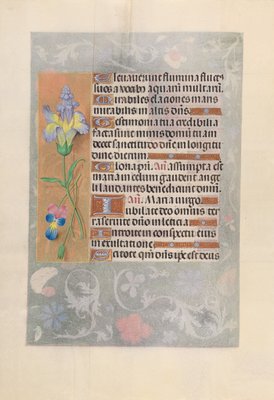 Eleuauerunt flumina fluct
suos a vocibus aquarum multarum.
Mirabiles elaciones maris
mirabilis in altis dns.
Testimonia tua credibilia
facta sunt nimis domum tuam
decet sanctitudo dne in longitu
dine dierum.
Gloria pri. An. assumpta est
maria in celum gaudent ange
li laudantes benedicunt dnm.
An. Maria virgo.
Iubilate deo omnis ter
ra seruite dno in leticia
Introite in conspectu eius
in exultatione
Scitote qm dns ipse est deus